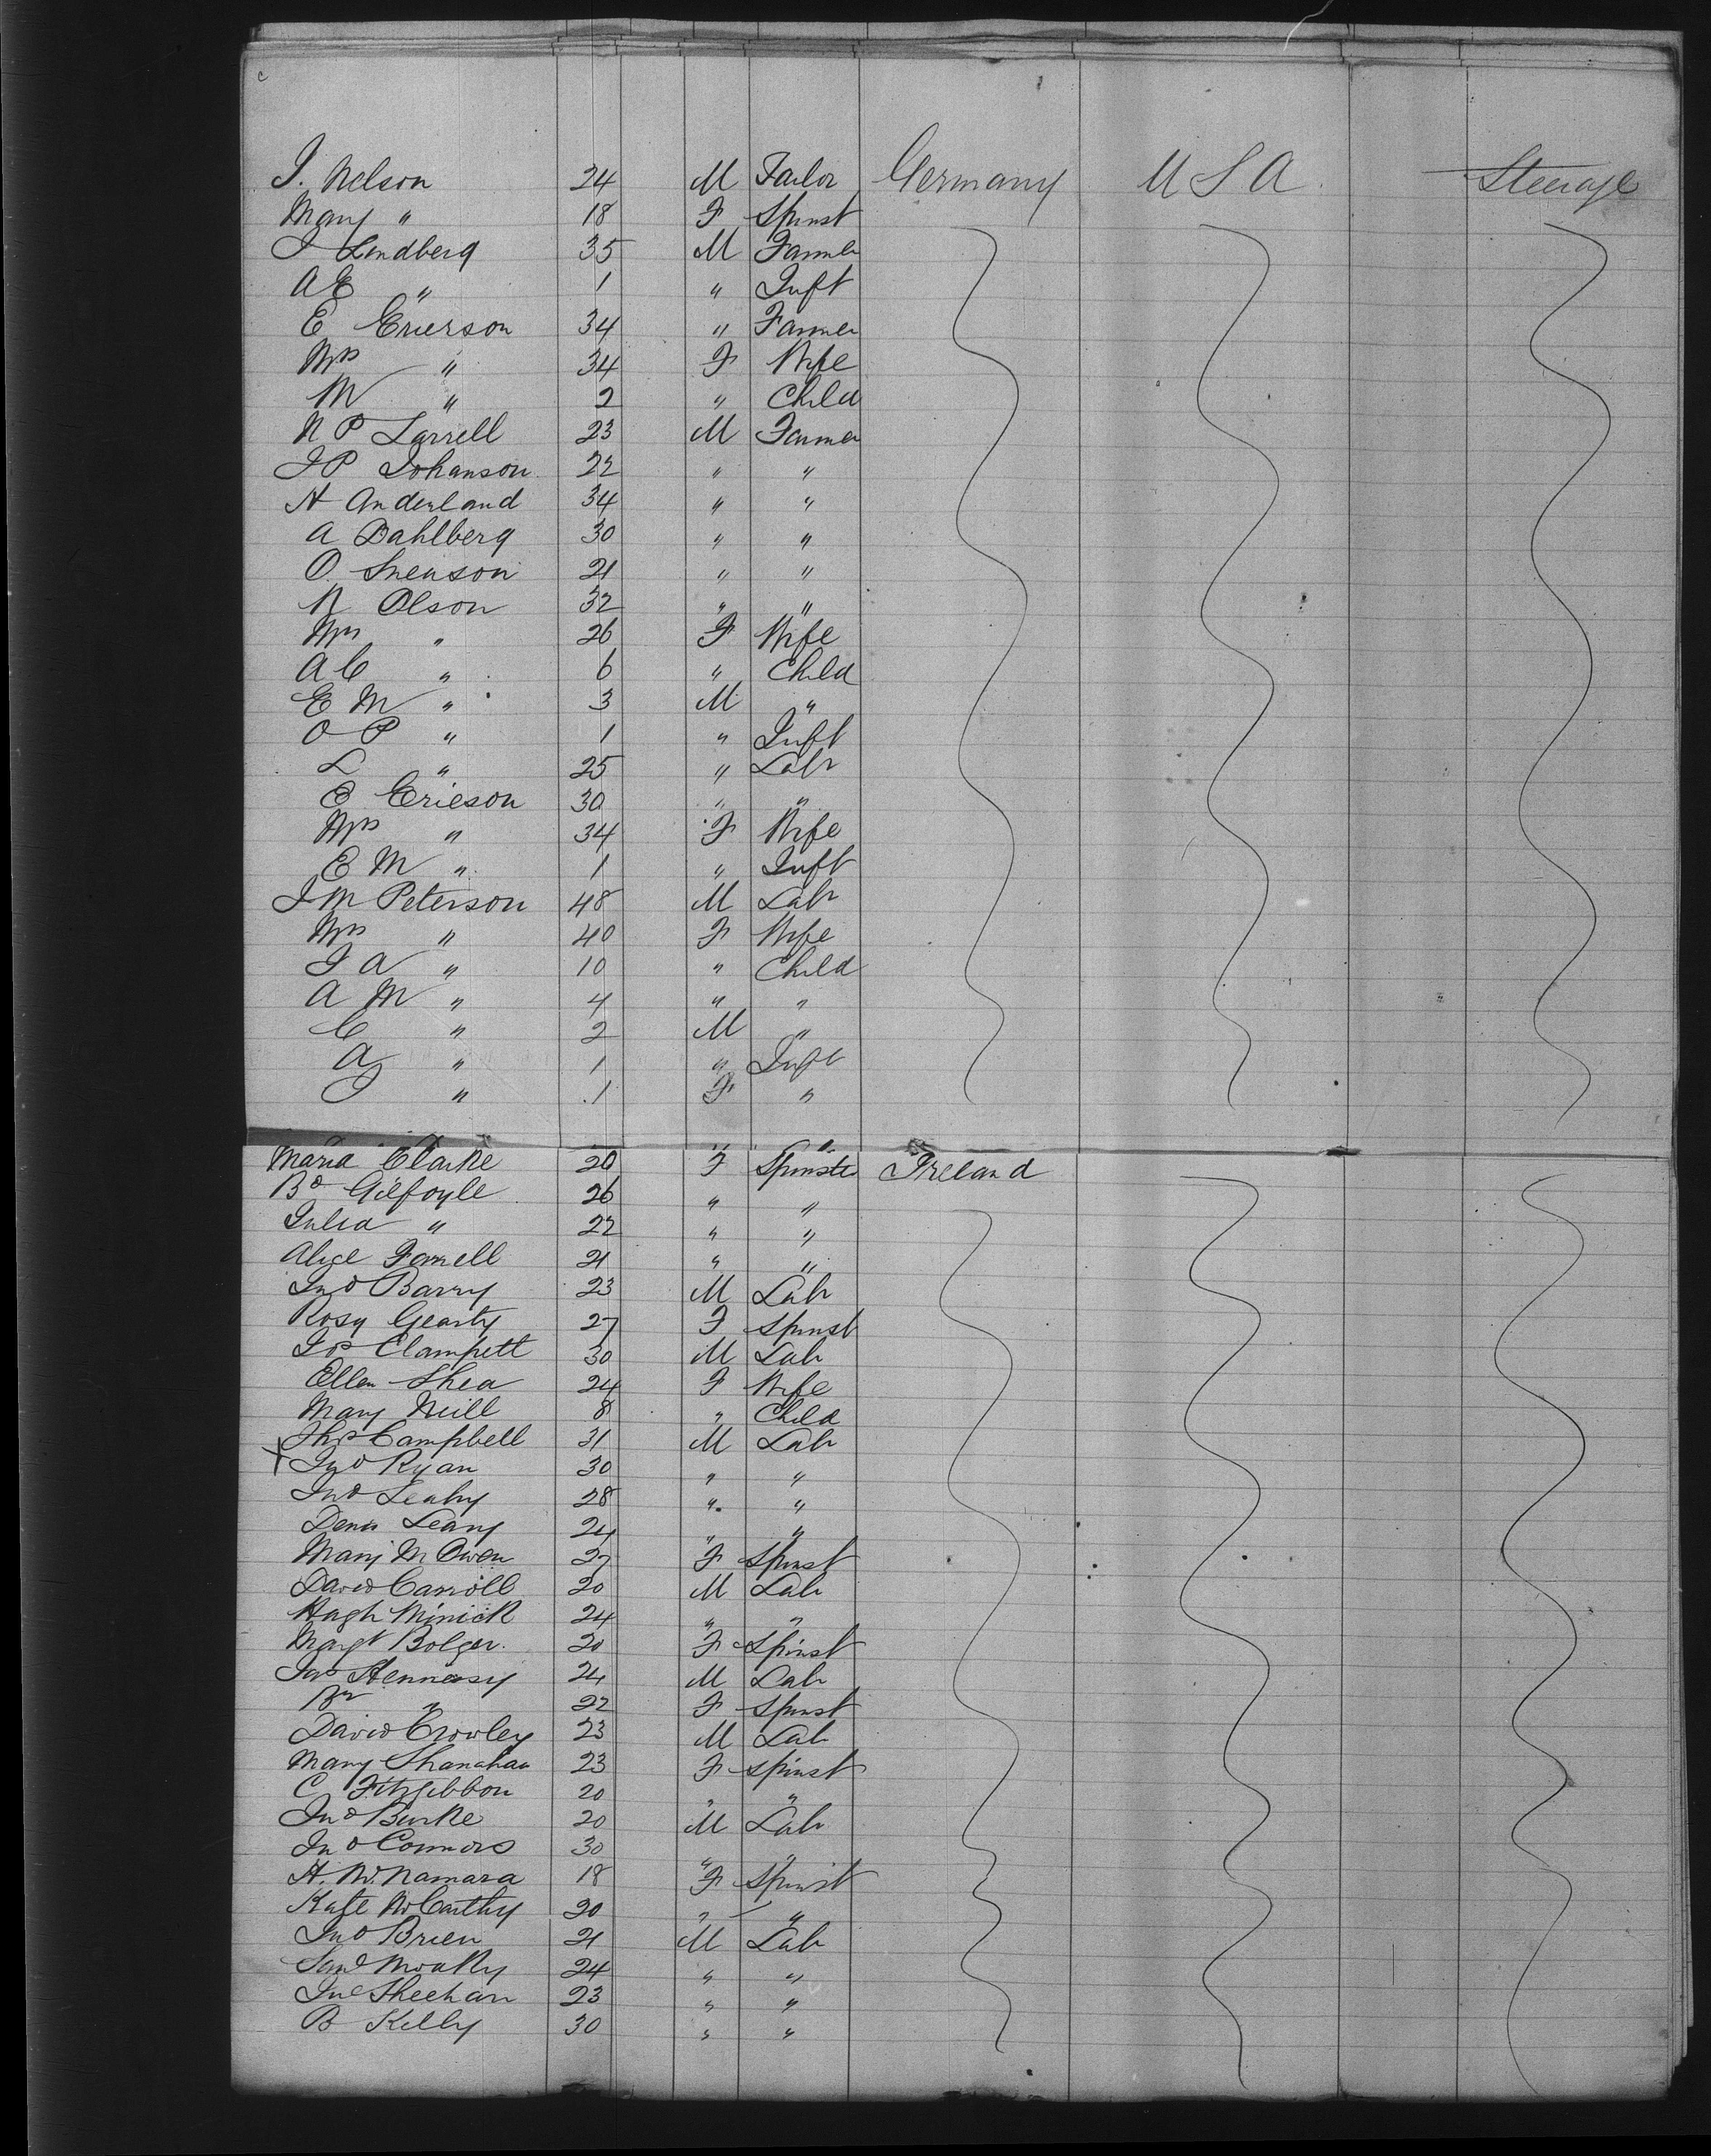 J. Nelson 24 M Tailor Germany U S A Steerage
Mary " 18 F Spinst
J Lindberg 35 M Farmer
A E " 1 " Inft
E Erierson 34 " Farmer
Mrs " 34 F Wife
M " 2 " Child
N P Larrell 23 M Farmer
J P Johanson 22 " "
A Anderland 34 " "
A Dahlberg 30 " "
O. Swenson 21 " "
N Olson 32 " "
Mrs " 26 F Wife
A C " 6 " Child
E M " 3 M "
O P " 1 " Inft
L " 25 " Labr
E Ericson 30 " "
Mrs " 34 F Wife
E M " 1 " Inft
J M Peterson 48 M Labr
Mrs " 40 F Wife
J A " 10 " Child
A M " 4 " "
C " 2 M "
A " 1 " Inft
J " 1 F "
Maria Clarke 20 F Spinster Ireland
Bd Gilfoyle 26 " "
Julia " 22 " "
Alice Farrell 21 " "
Jno Barry 23 M Labr
Rosy Gearty 27 F Spinst
Jos Clampett 30 M Labr
Ellen Shea 24 F Wife
Mary Neill 8 " Child
Thos Campbell 31 M Labr
X Jno Ryan 30 " "
Jno Leahy 28 " "
Denis Leary 24 " "
Mary McOwen 27 F Spinst
David Carroll 20 M Labr
Hugh Minick 24 " "
Margt Bolger 20 F Spinst
Jas Hennessy 24 M Labr
" 22 F Spinst
David Crowley 23 M Labr
Mary Shanahan 23 F Spinst
C Fitzgibbon 20 " "
Jno Burke 20 M Labr
Jno Connors 30 " "
H. McNamara 18 F Spinst
Kate McCarthy 20 " "
Jno Brien 21 M Labr
Saml Moakly 24 " "
Jno Sheehan 23 " "
B Kelly 30 " "